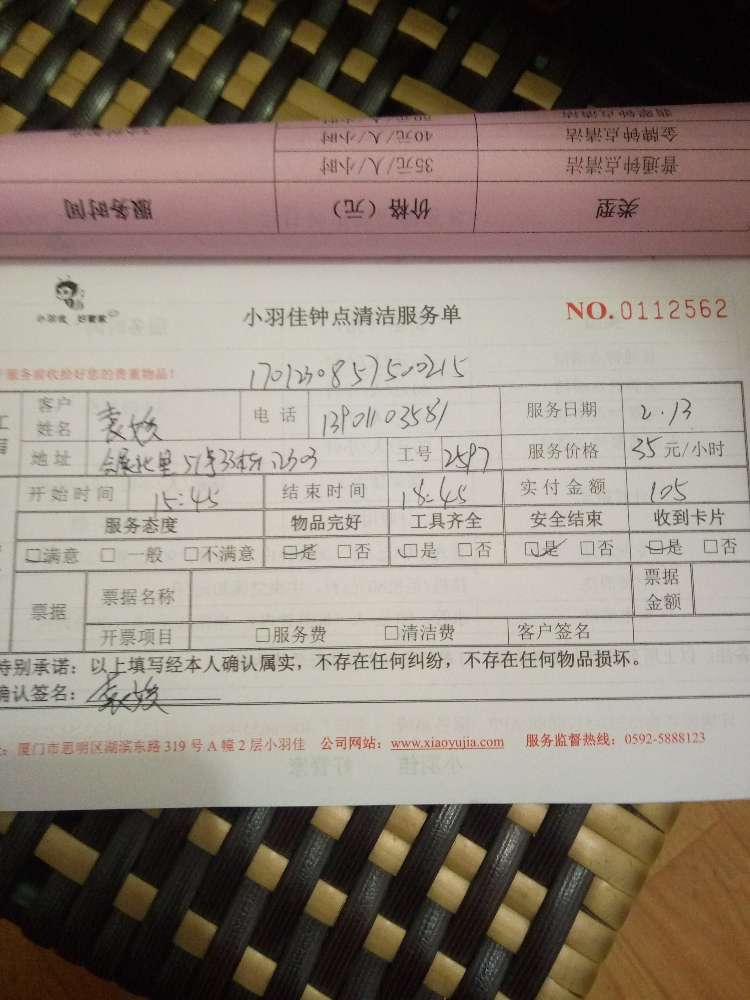 翡翠钟点清洁
金牌钟点清洁 40元/人/小时
普通钟点清洁 35元/人/小时
类型 价格（元） 服务时间
小羽佳 好管家
小羽佳钟点清洁服务单
NO.0112562
服务前收拾好您的贵重物品！
1701230857500215
客户姓名 电话 13901103581 服务日期 2.13
地址 会展北里 工号 2597 服务价格 35元/小时
开始时间 15:45 结束时间 18:45 实付金额 105
服务态度 物品完好 工具齐全 安全结束 收到卡片
□满意 □一般 □不满意 □是 □否 □是 □否 □是 □否 □是 □否
票据 票据名称 票据金额
开票项目 □服务费 □清洁费 客户签名
特别承诺：以上填写经本人确认属实，不存在任何纠纷，不存在任何物品损坏。
确认签名：
厦门市思明区湖滨东路319号A幢2层小羽佳 公司网站：www.xiaoyujia.com 服务监督热线：0592-5888123